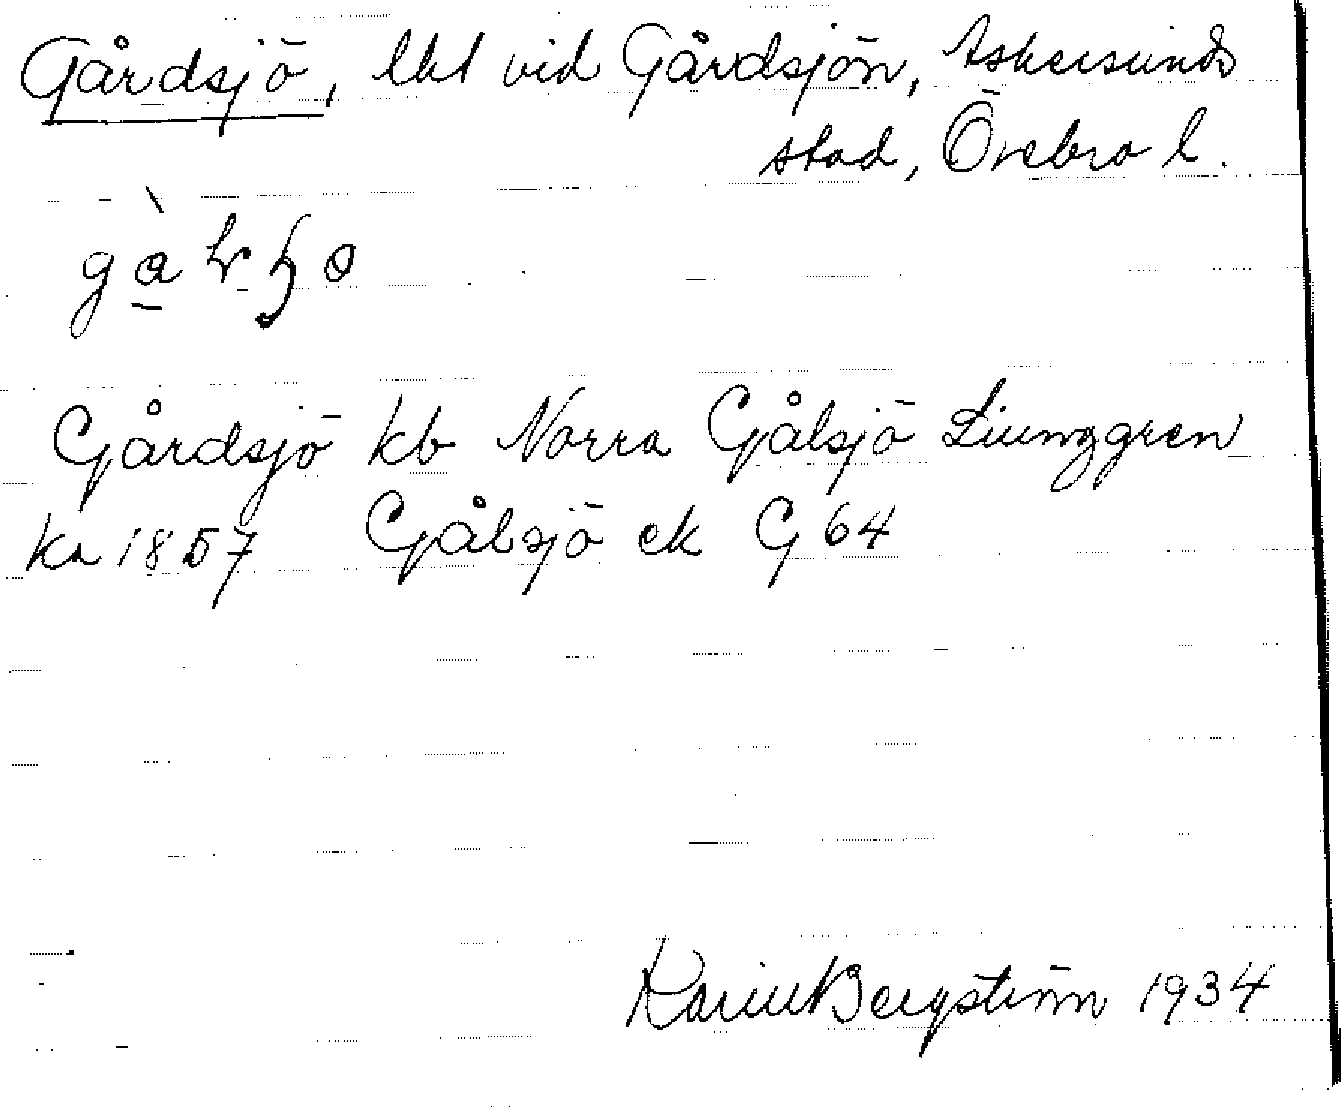 Gårdsjö, lht vid Gårdsjön, Askersunds
stad, Örebro l.
Gårdsjö kb Norra Gålsjö Liunggren
ka 1857 Gålsjö ek G 64
Karin Bergström 1934